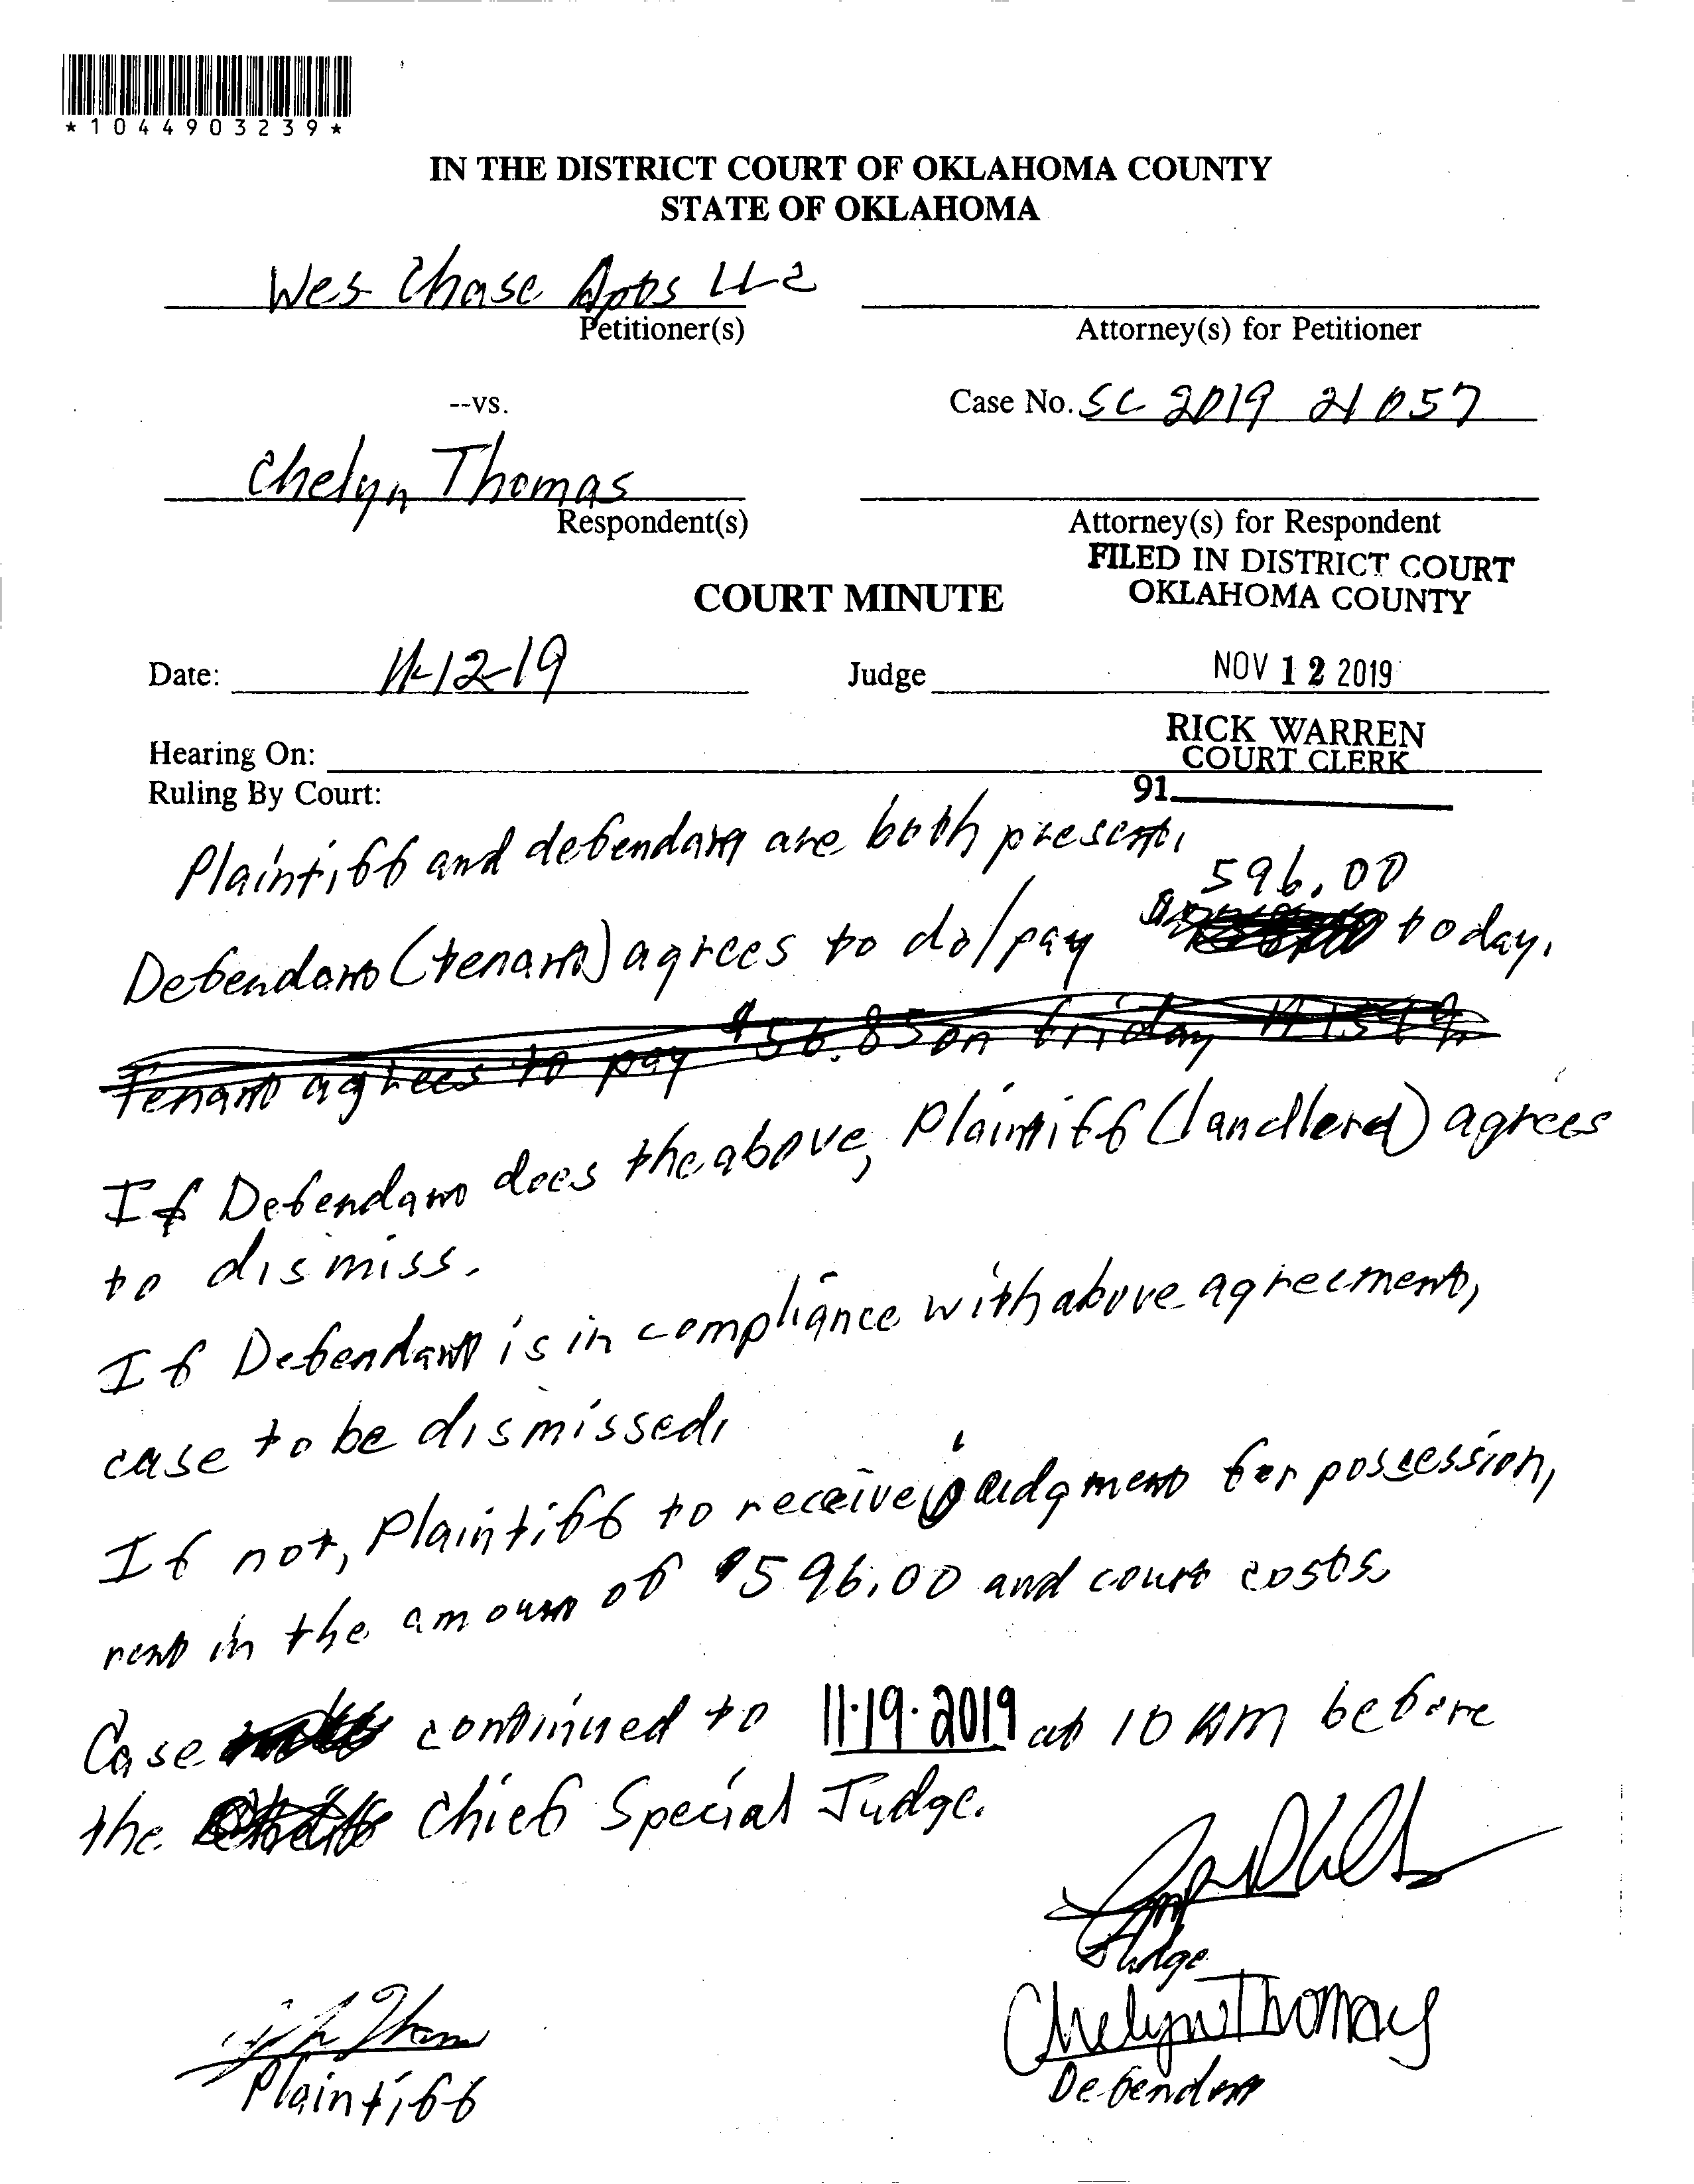 *1044903239*
IN THE DISTRICT COURT OF OKLAHOMA COUNTY
STATE OF OKLAHOMA
Wes Chase Apts LLC
Petitioner(s)
Attorney(s) for Petitioner
--vs.
Case No. SC 2019 21057
Chelyn Thomas
Respondent(s)
Attorney(s) for Respondent
FILED IN DISTRICT COURT
OKLAHOMA COUNTY
COURT MINUTE
Date: 11-12-19
Judge
NOV 12 2019
RICK WARREN
COURT CLERK
Hearing On:
91
Ruling By Court:
Plaintiff and defendant are both present.
596.00
Defendant (tenant) agrees to do/pay today.
Tenant agrees to pay $56.85 on Friday 11.15.19
If Defendant does the above, Plaintiff (landlord) agrees
to dismiss.
If Defendant is in compliance with above agreement,
case to be dismissed.
If not, Plaintiff to receive judgment for possession,
rent in the amount of $596.00 and court costs.
Case continued to 11.19.2019 at 10 AM before
the Chief Special Judge.
Judge
Chelyn Thomas
Plaintiff
Defendant